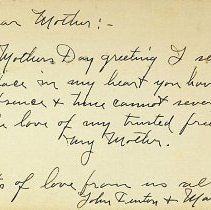 ear Mother:-
Mothers Day greeting I se
lace in my heart you hav
sence & time cannot seve
e love of my trusted frie
my Mother.
ts of love from us al
John Tinton & Ma